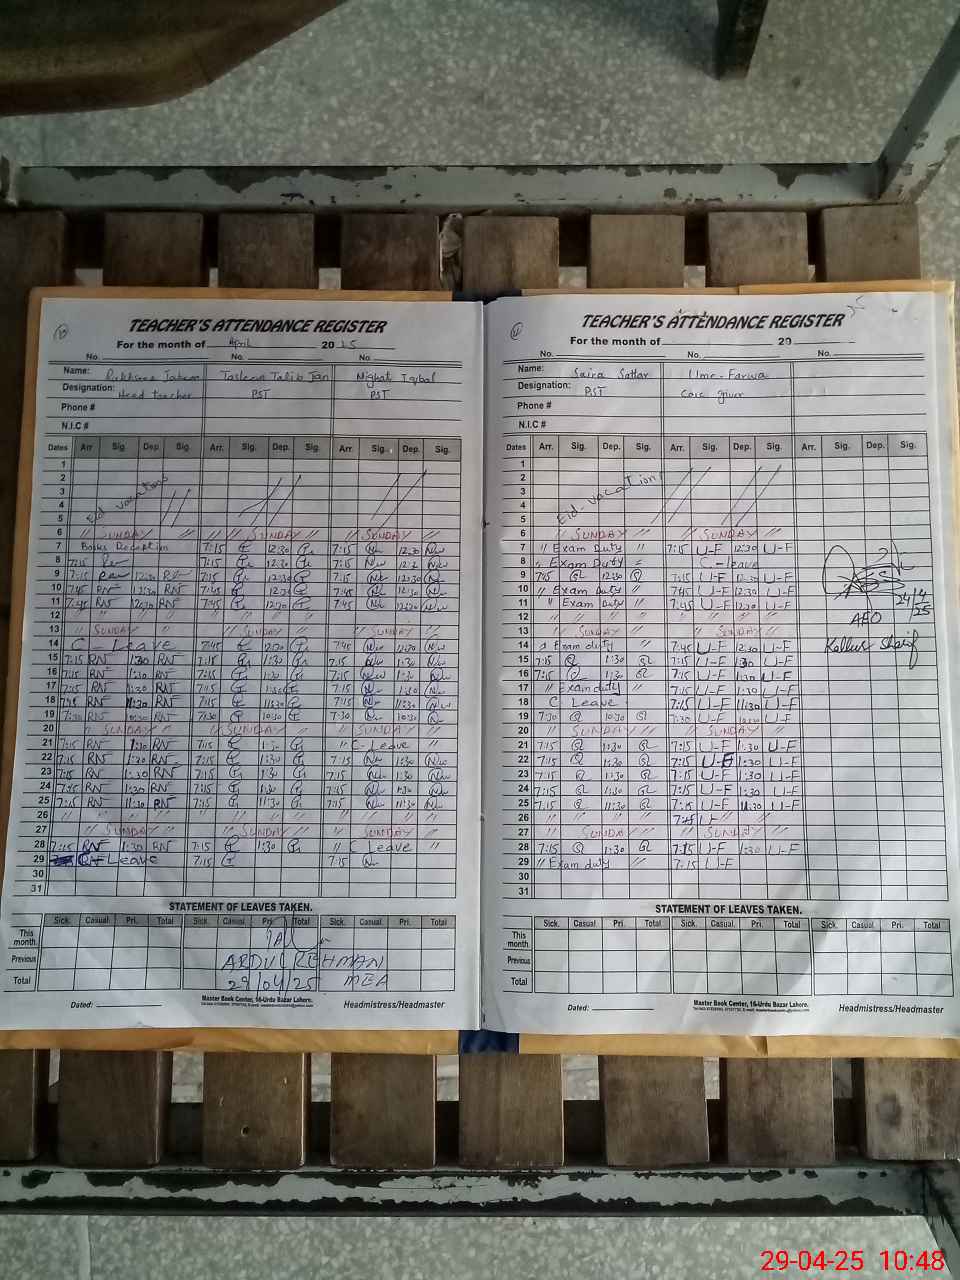 TEACHER'S ATTENDANCE REGISTER
For the month of April 2025
No. No. No.
Name: Tasleem Talib Jan Nighat Iqbal
Designation: Head teacher PST PST
Phone #
N.I.C #
Dates Arr Sig. Dep Sig. Arr. Sig. Dep. Sig. Arr. Sig. Dep. Sig.
1
2 Eid vacations
3
4
5
6 // SUNDAY // // SUNDAY // // SUNDAY //
7 Books 7:15 12:30 7:15 12:30 Nw
8 7:15 7:15 12:30 7:15 Nw
9 7:15 12:30 7:15 12:30 7:15 12:30 Nw
10 7:45 RN 12:30 RN 7:45 12:30 7:45 12:30 Nw
11 7:45 RN 12:30 RN 7:45 12:30 7:45 12:30 Nw
12 // // // // // // // //
13 // SUNDAY // // SUNDAY // // SUNDAY //
14 C - Leave 7:45 12:30 7:45 Nw 12:30 Nw
15 7:15 RN 1:30 RN 7:15 1:30 7:15 Nw 1:30 Nw
16 7:15 RN 1:30 RN 7:15 1:30 7:15 Nw 1:30 Nw
17 7:15 RN 1:30 RN 7:15 1:30 7:15 Nw 1:30 Nw
18 7:45 RN 11:30 RN 7:15 11:30 7:15 Nw 11:30 Nw
19 7:30 RN 10:30 RN 7:30 10:30 7:30 10:30
20 // SUNDAY // // SUNDAY // // SUNDAY //
21 7:15 RN 1:30 RN 7:15 1:30 // C- Leave //
22 7:15 RN 1:30 RN 7:15 1:30 7:15 Nw 1:30 Nw
23 7:15 RN 1:30 RN 7:15 1:30 7:15 Nw 1:30 Nw
24 7:15 RN 1:30 RN 7:15 1:30 7:15 Nw 1:30 Nw
25 7:15 RN 11:30 RN 7:15 11:30 7:15 Nw 11:30 Nw
26 // // // // // // // //
27 // SUNDAY // // SUNDAY // // SUNDAY //
28 7:15 RN 1:30 RN 7:15 1:30 // C Leave //
29 Leave 7:15 7:15
30
31
STATEMENT OF LEAVES TAKEN.
Sick. Casual. Pri. Total Sick. Casual. Pri. Total Sick. Casual. Pri. Total
This month.
Previous ABDUL REHMAN
Total 29/04/25 MEA
Dated:
Master Book Center, 16-Urdu Bazar Lahore.
Headmistress/Headmaster
TEACHER'S ATTENDANCE REGISTER
For the month of 20
No. No. No.
Name: Saira Sattar Ume-Farwa
Designation: PST Care giver
Phone #
N.I.C #
Dates Arr. Sig. Dep. Sig. Arr. Sig. Dep. Sig. Arr. Sig. Dep. Sig.
1
2 Eid-vacations
3
4
5
6 // SUNDAY // // SUNDAY //
7 // Exam Duty // 7:15 U-F 12:30 U-F
8 // Exam Duty // C - leave
9 7:45 12:30 7:15 U-F 12:30 U-F
10 // Exam Duty // 7:45 U-F 12:30 U-F
11 // Exam Duty // 7:45 U-F 12:30 U-F
24/4/25
12 // // // // // //
AEO
13 // SUNDAY // // SUNDAY //
14 Exam duty // 7:45 U-F 12:30 U-F
Sharif
15 7:15 1:30 7:15 U-F 1:30 U-F
16 7:15 1:30 7:15 U-F 1:30 U-F
17 // Exam duty // 7:15 U-F 1:30 U-F
18 C Leave 7:15 U-F 11:30 U-F
19 7:30 10:30 7:30 U-F 10:30 U-F
20 // SUNDAY // // SUNDAY //
21 7:15 1:30 7:15 U-F 1:30 U-F
22 7:15 1:30 7:15 U-F 1:30 U-F
23 7:15 1:30 7:15 U-F 1:30 U-F
24 7:15 1:30 7:15 U-F 1:30 U-F
25 7:15 11:30 7:15 U-F 11:30 U-F
26 // // // //
27 // SUNDAY // // SUNDAY //
28 7:15 1:30 7:15 U-F 1:30 U-F
29 // Exam duty // 7:15 U-F
30
31
STATEMENT OF LEAVES TAKEN.
Sick. Casual. Pri. Total Sick. Casual. Pri. Total Sick. Casual. Pri. Total
This month.
Previous
Total
Dated:
Master Book Center, 16-Urdu Bazar Lahore.
Headmistress/Headmaster
29-04-25 10:48